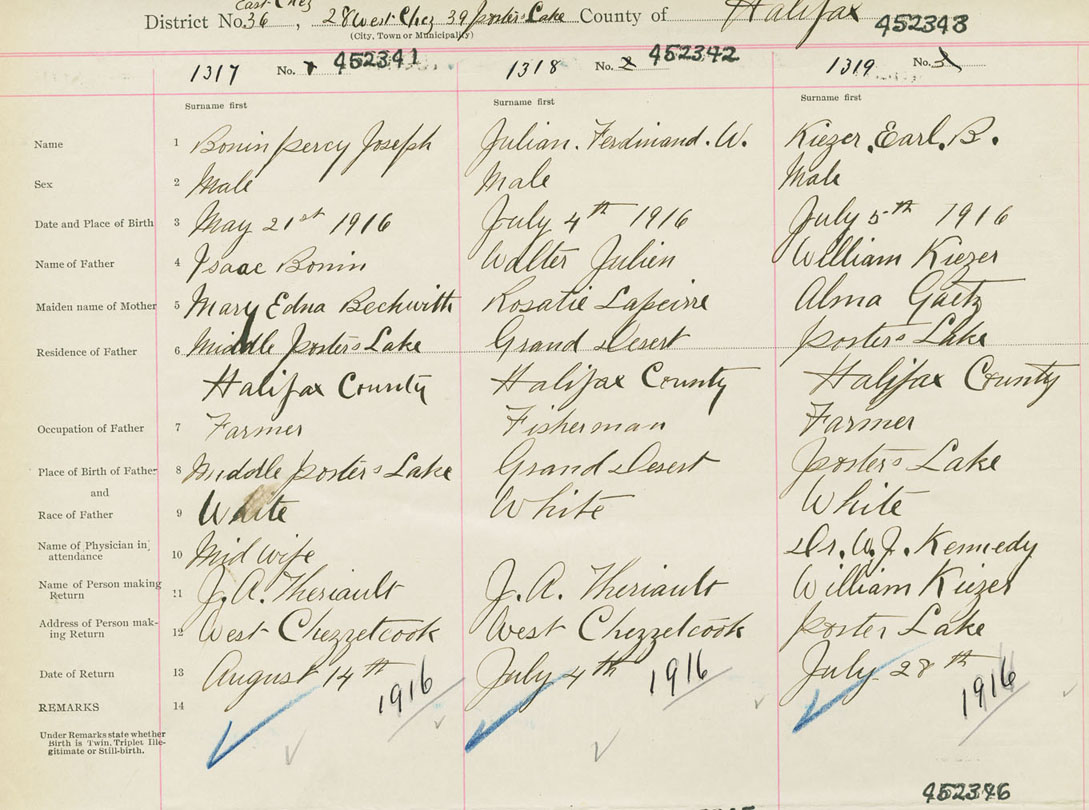 East Chez
District No. 36, 28 West Chez 39 porter's Lake County of Halifax
(City, Town or Municipality)
452343
1317 No. 1 452341 1318 No. 2 452342 1319 No. 3
Surname first Surname first Surname first
Name 1 Bonin percy Joseph Julian. Ferdinand. W. Kiezer, Earl, B.
Sex 2 Male Male Male
Date and Place of Birth 3 May 21st 1916 July 4th 1916 July 5th 1916
Name of Father 4 Isaac Bonin Walter Julien William Kiezer
Maiden name of Mother 5 Mary Edna Beckwith Rosatie Lapeirre Alma Gaetz
Residence of Father 6 Middle porters Lake Grand Desert porters Lake
Halifax County Halifax County Halifax County
Occupation of Father 7 Farmer Fisherman Farmer
Place of Birth of Father 8 Middle porters Lake Grand Desert porters Lake
and
Race of Father 9 White White White
Name of Physician in attendance 10 Mid wife Dr. W. J. Kennedy
Name of Person making Return 11 J. A. Theriault J. A. Theriault William Kiezer
Address of Person making Return 12 West Chezzetcook West Chezzetcook porter Lake
Date of Return 13 August 14th 1916 July 4th 1916 July 28th 1916
REMARKS 14
Under Remarks state whether
Birth is Twin, Triplet Ille-
gitimate or Still-birth.
452346